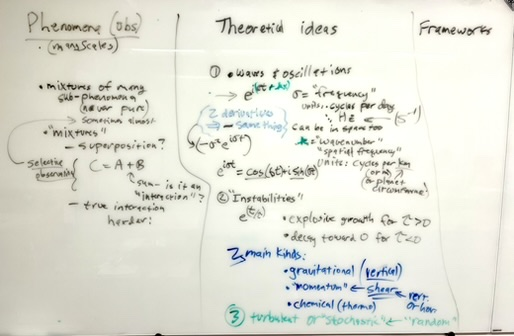 Phenomena (obs)
• (many scales)
• mixtures of many
sub-phenomena
(never pure)
→ sometimes almost
• "mixtures"
- superposition?
Selective
observation
C = A + B
sum - is it an
"interaction"?
- true interaction
harder!
Theoretical ideas
① • waves & oscillations
→ σ = "frequency"
units: cycles per day
Hz (s⁻¹)
2 derivatives
→ - something
can be in space too
k = "wavenumber"
"spatial frequency"
Units: cycles per km
(or m)
or planet
circumference
(-σ² e^iσt)
e^iσt = cos(σt) + i sin(σt)
② "Instabilities"
e^(t/τ)
• explosive growth for τ>0
• decay toward 0 for τ<0
2 main kinds:
• gravitational (vertical)
• "momentum" ← shear ← vert.
or horiz
• chemical (thermo)
③ turbulent or "stochastic" ← "random"
Frameworks